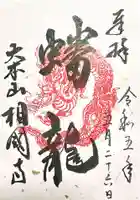 奉拝
令和五年
五月二十六日
蟠龍
大本山相国寺